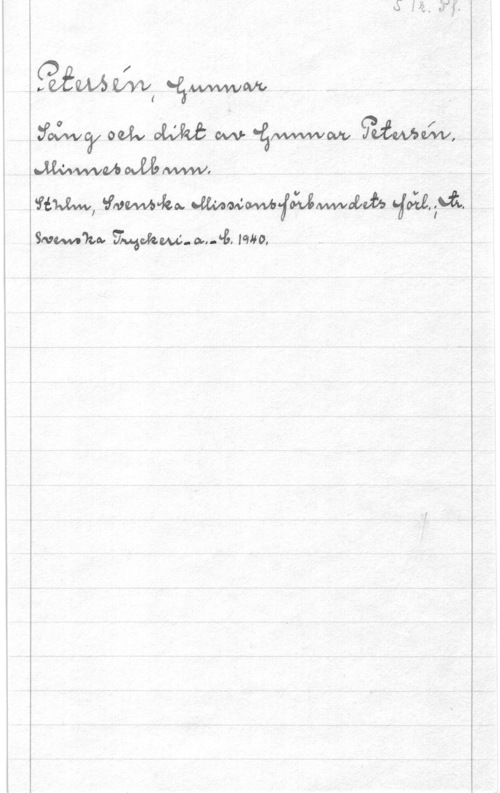 Petersén, Gunnar
Sång och dikt av Gunnar Petersén.
Minnesalbum.
Sthlm, Svenska Missionsförbundets förl.; tr.
Svenska Tryckeri-a.-b. 1940.